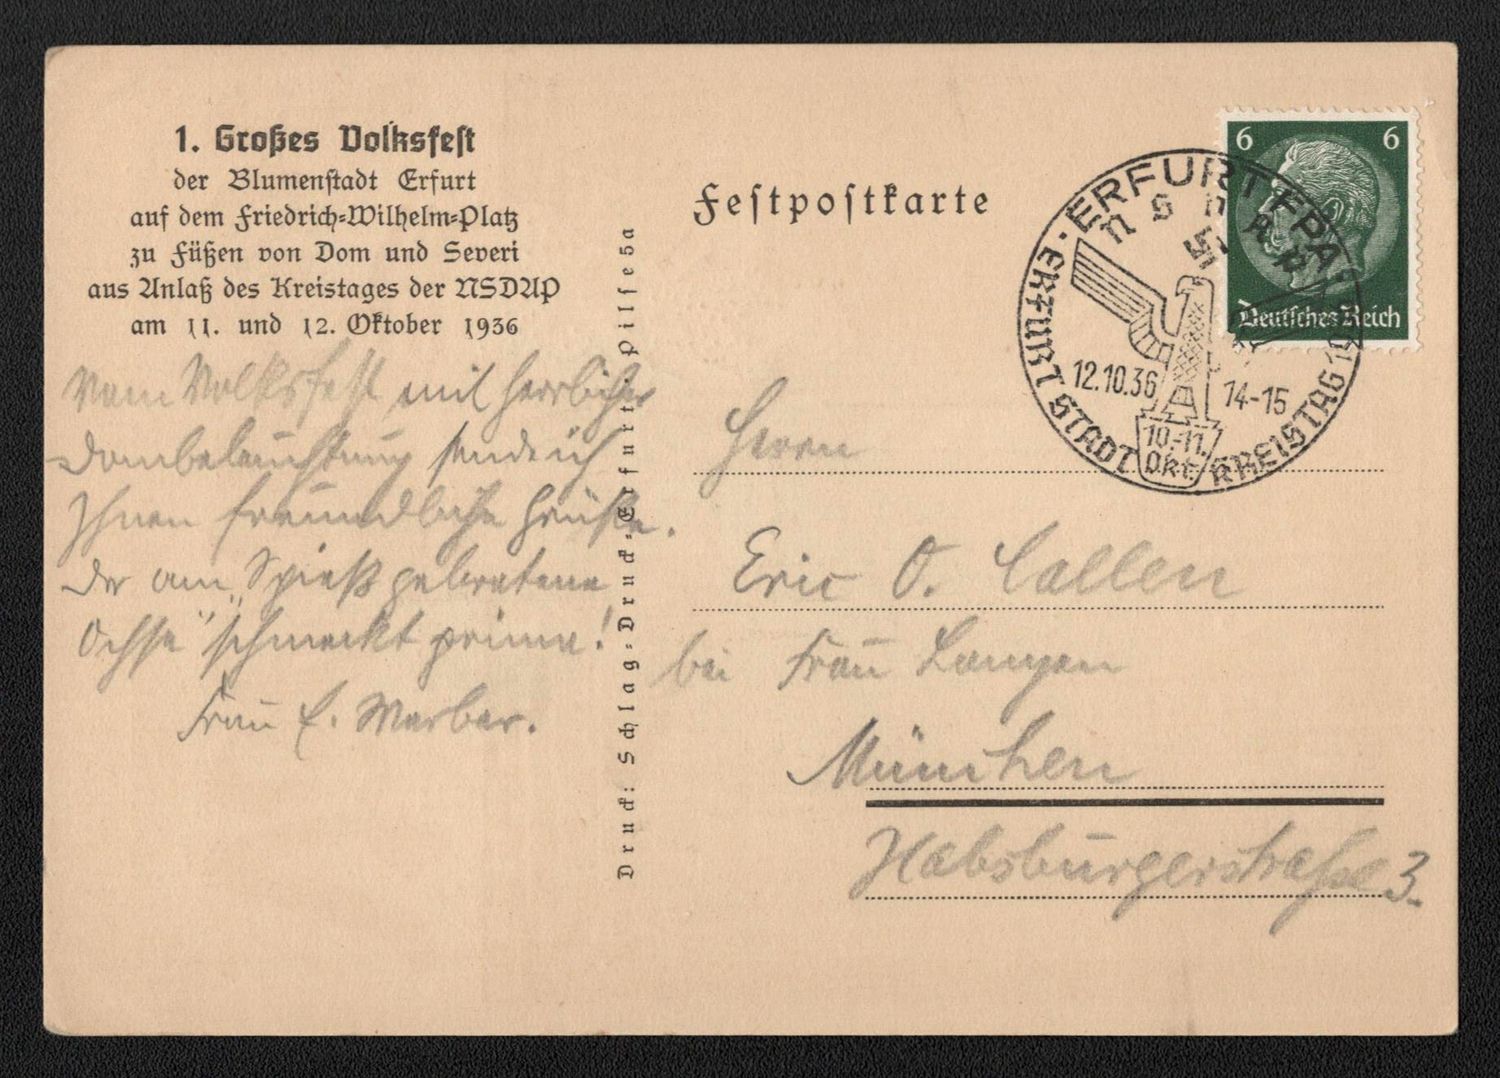 1. Großes Volksfest
der Blumenstadt Erfurt
auf dem Friedrich=Wilhelm=Platz
zu Füßen von Dom und Severi
aus Anlaß des Kreistages der NSDAP
am 11. und 12. Oktober 1936
Vom Volksfest mit herrlicher
Dombeleuchtung sende ich
Ihnen freundliche Grüße.
Der am „Spieß gebratene
Ochse" schmeckt prima!
Frau E. Marbar.
Druck: Schlag=Druck=Erfurt, Pilse 5a
Festpostkarte
6 6
Deutsches Reich
ERFURT FPA
NSDAP
ERFURT STADT KREISTAG
12.10.36 14-15
10.-11.
Okt.
Herrn
Eric O. Callen
bei Frau Langen
München
Habsburgerstraße 3.